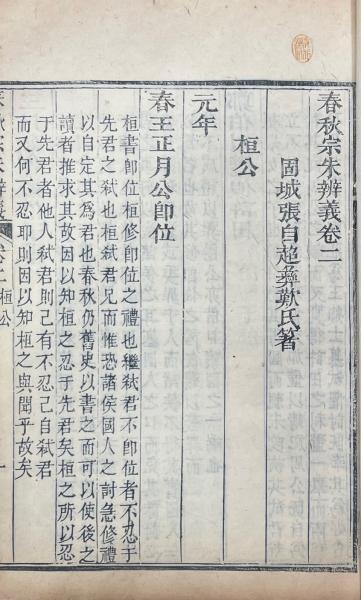 春秋宗朱辨義卷二
固城張自超彞歎氏著
桓公
元年
春王正月公卽位
桓書卽位桓修卽位之禮也繼弑君不卽位者不忍于
先君之弑也桓弑君兄而惟恐諸侯國人之討急修禮
以自定其爲君也春秋仍舊史以書之而可以使後之
讀者推求其故因以知桓之忍于先君矣桓之所以忍
于先君者他人弑君則己有不忍己自弑君
而又何不忍耶則因以知桓之與聞乎故矣
春秋宗朱辨義 卷二 桓公 一